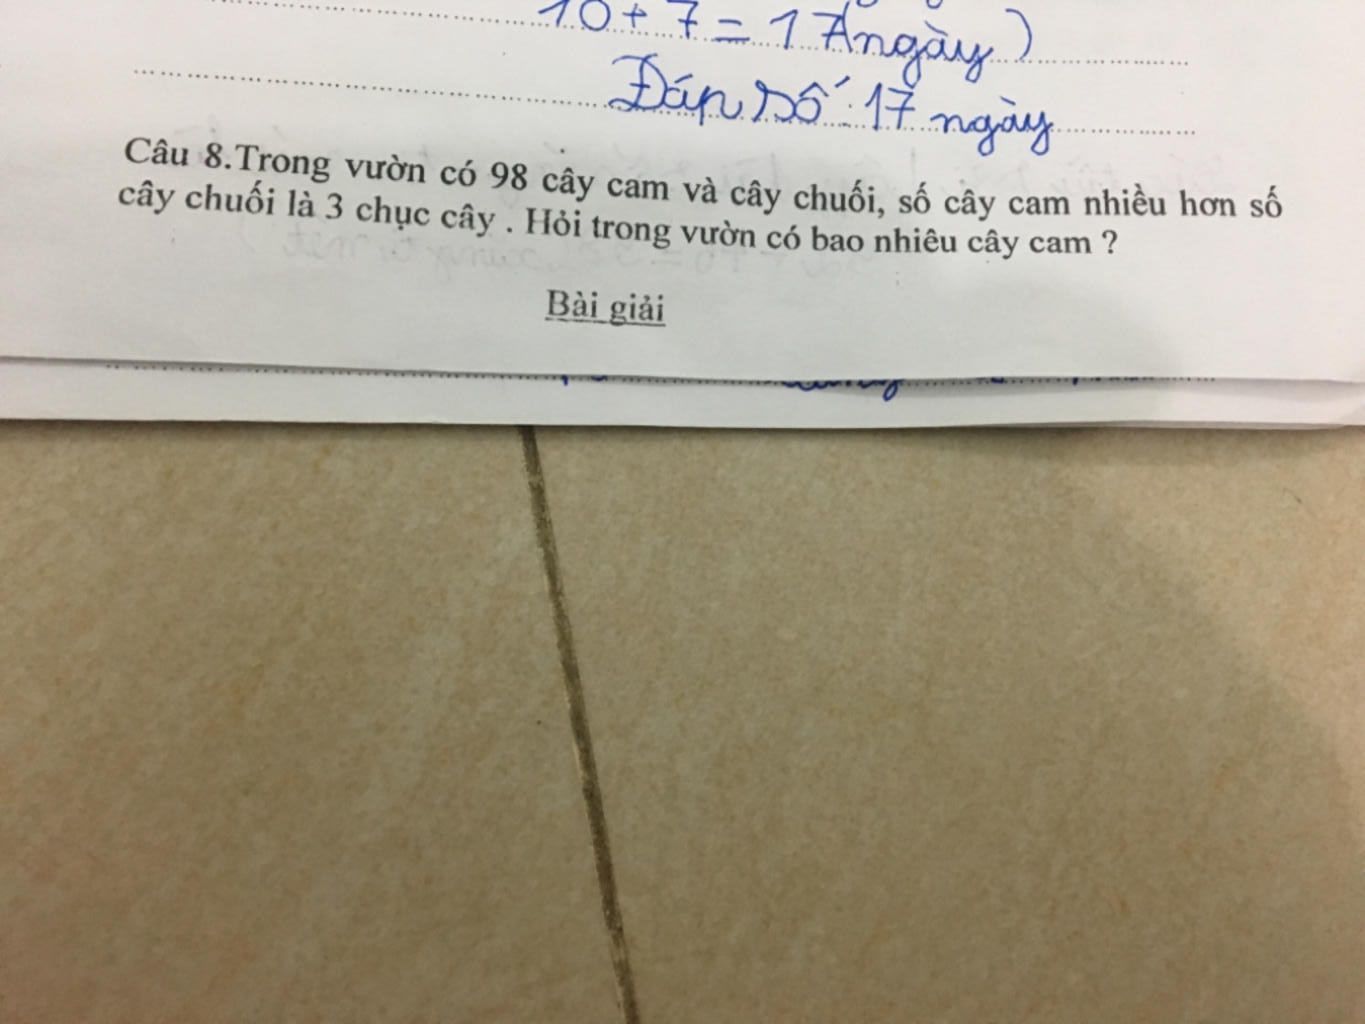 10 + 7 = 17 (ngày)
Đáp số: 17 ngày
Câu 8.Trong vườn có 98 cây cam và cây chuối, số cây cam nhiều hơn số
cây chuối là 3 chục cây . Hỏi trong vườn có bao nhiêu cây cam ?
Bài giải